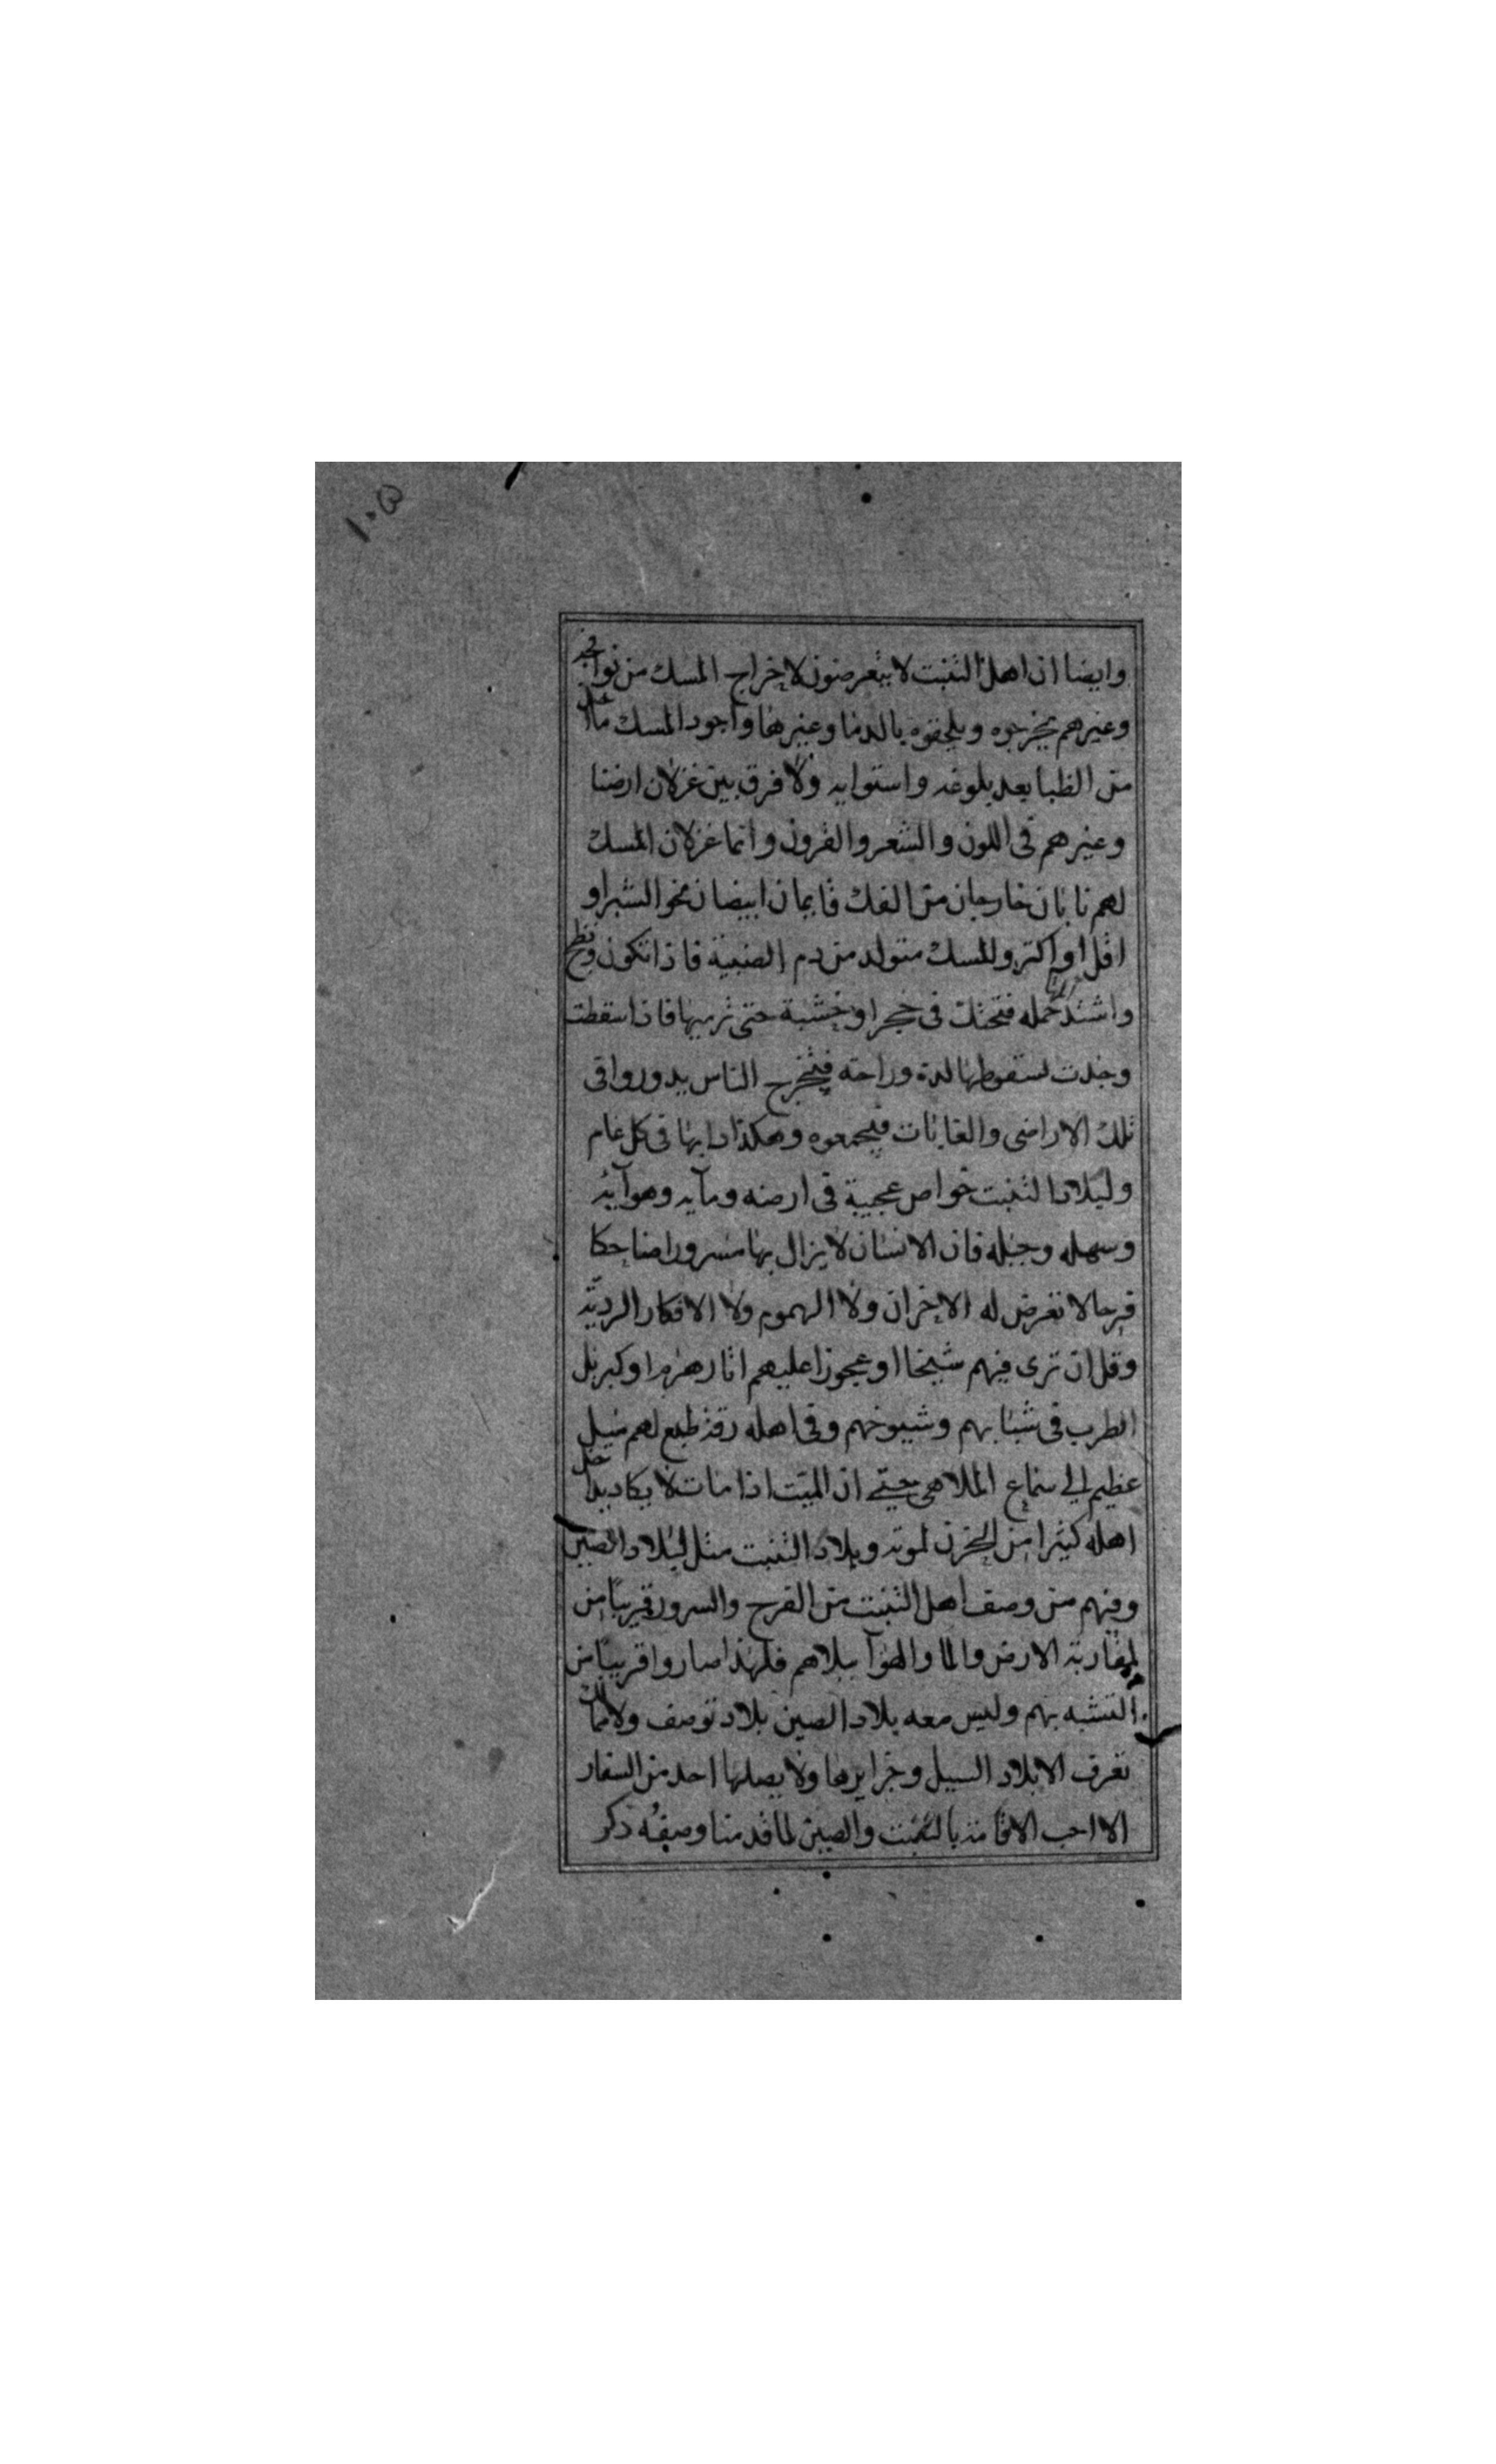 ١٠٥
وايضا ان اهل التنبت لا يتعرضون لاخراج المسك من نوافجه
وغيرهم يخرجوه ويلحقوه بالدما وغيرها واجود المسك ما
من الظبا بعد بلوغه واستوايه ولا فرق بين غزلان ارضنا
وغيرهم فى اللون والشعر والقرون وانما غزلان المسك
لهم نابان خارجان من الفك قايمان ابيضان نحو الشبر او
اقل او اكثر والمسك متولد من دم الضبية فاذا تكون ونضج
واشتد حمله فتحتك فى حجر او خشبة حتى ترميها فاذا سقطت
وجدت لسقوطها لدة وراحته فيخرج الناس يدوروا فى
تلك الاراضى والغابات فيجمعوه وهكذا دابها فى كل عام
ولبلاد التنبت خواص عجيبة فى ارضه ومآيه وهوآيه
وسهله وجبله فان الانسان لا يزال بها مسرورا ضاحكا
فرحا لا تعرض له الاحزان ولا الهموم ولا الافكار الرديّه
وقل ان ترى فيهم شيخا او عجوزا عليهم اثار هرم او كبر بل
الطرب فى شبابهم وشيوخهم وفى اهله رقة طبع لهم ميل
عظيم الى سماع الملاهى حتى ان الميّت اذا مات لا يكاد يدخل
اهله كثيرا من الحزن لموته وبلاد التنبت مثل لبلاد الصين
وفيهم من وصف اهل التنبت من الفرح والسرور قريبا من
لمقاربة الارض والما والهوآ ببلاهم فلهذا صاروا قريبا من
التشبه بهم وليس معه بلاد الصين بلاد توصف ولا مما
تعرف الا بلاد السيل وجزايرها ولا يصلها احد من السفار
الا احب الاقامة بالتنبت والصين لما قدمنا وصفه ذكر